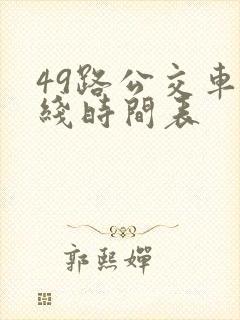 49路公交車
綫時間表
郭熙嬋